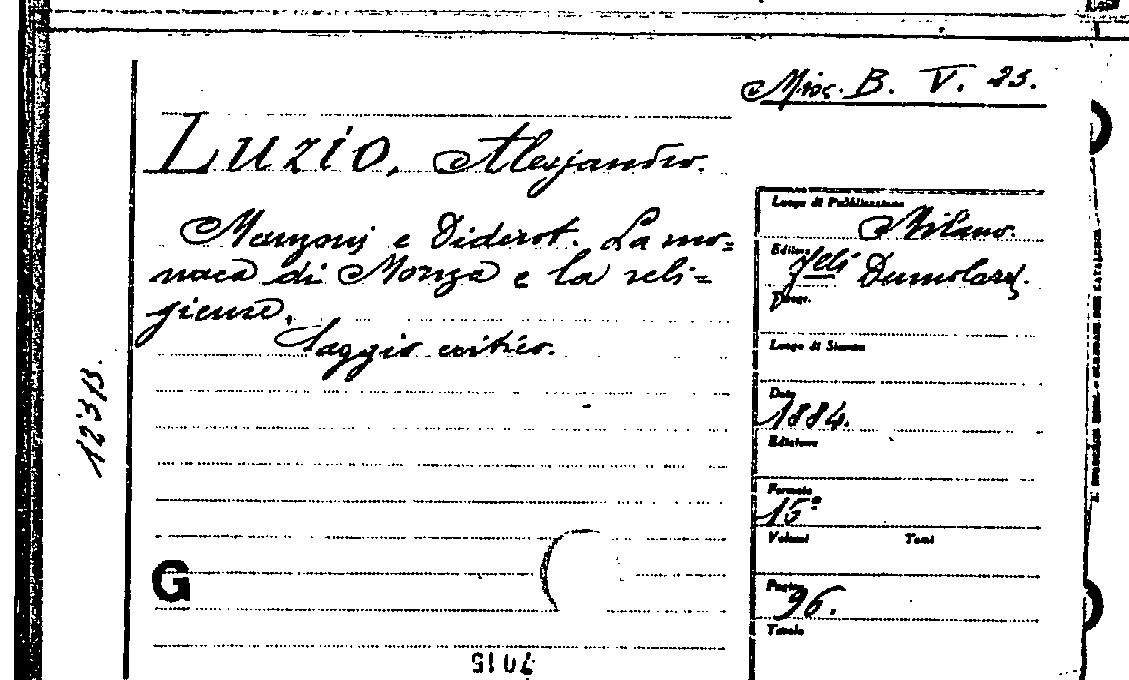 Misc. B. V. 23.
Luzio, Alessandro.
Manzoni e Diderot. La mo=
naca di Monza e la reli=
gieuse.
Saggio critico.
Luogo di Pubblicazione
Milano.
Editore
f.lli Dumolard.
Luogo di Stampa
Data
1884.
Edizione
Formato
16°
Volumi Tomi
Pagine
96.
Tavole
123 B.
G
7015